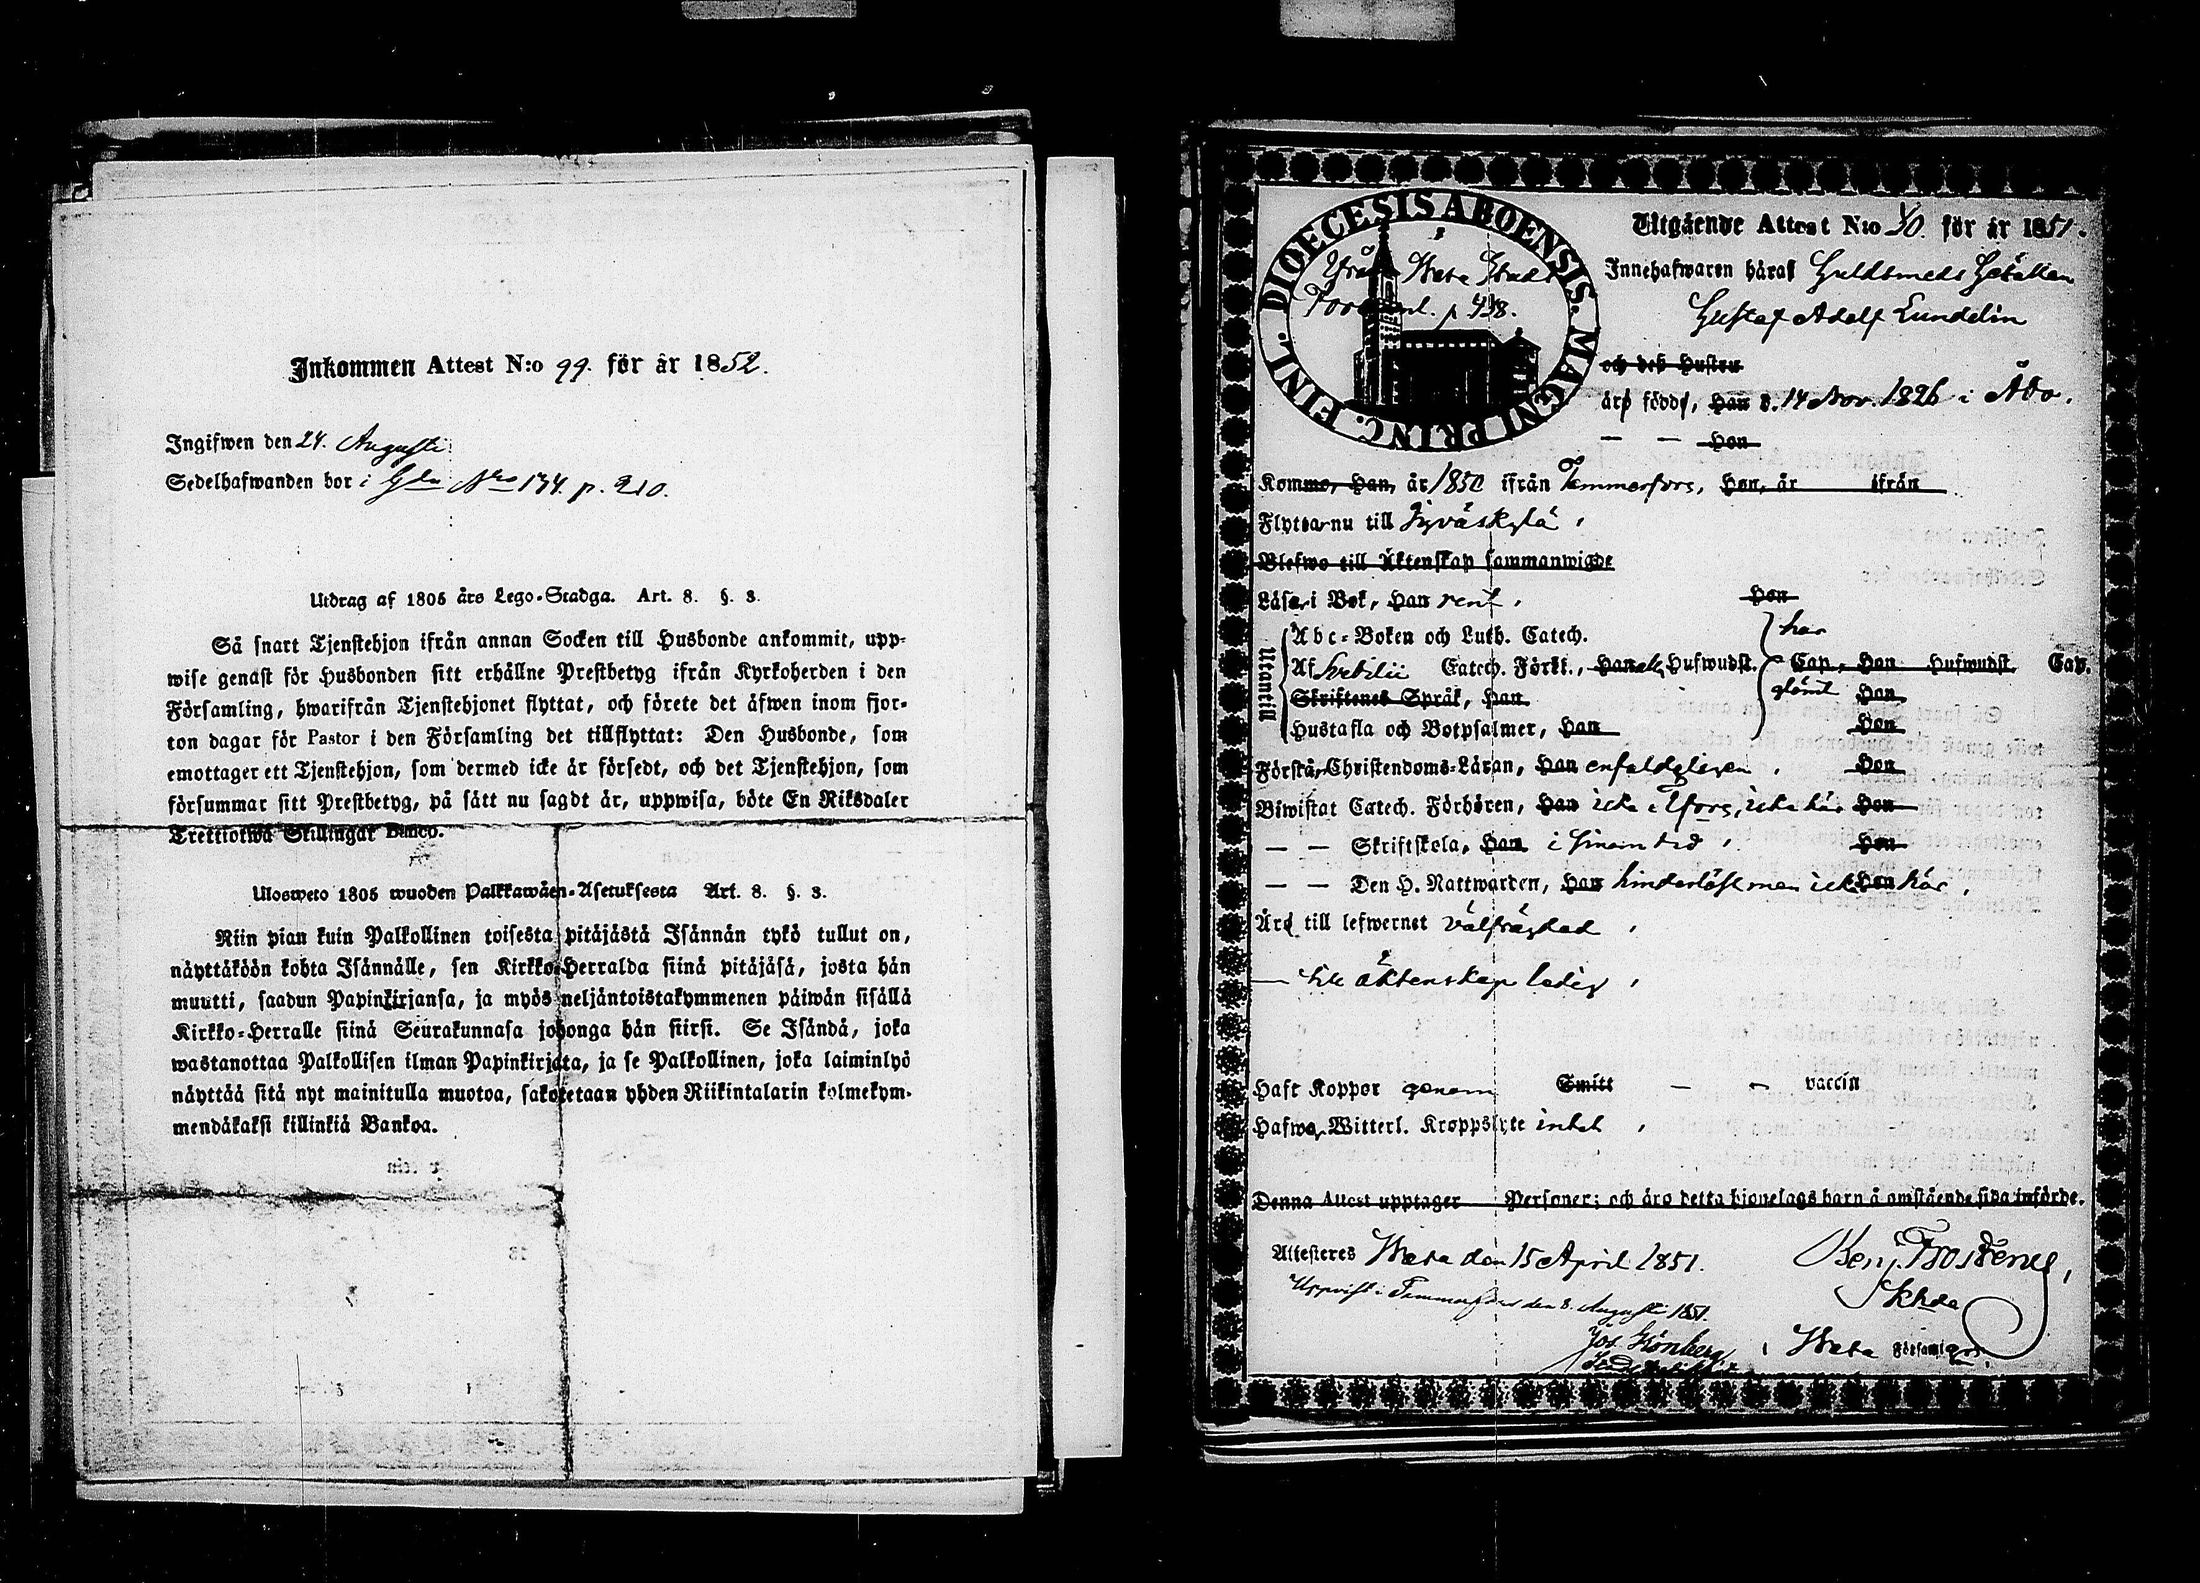 Inkommen Attest N:o 99. för år 1852.
Ingifwen den 24. Augusti
Sedelhafwanden bor i Gdn Nro 174. p. 210.
Utdrag af 1805 års Lego-Stadga. Art. 8. §. 3.
Så snart Tjenstehjon ifrån annan Socken till Husbonde ankommit, upp-
wise genast för Husbonden sitt erhållne Prestbetyg ifrån Kyrkoherden i den
Församling, hwarifrån Tjenstehjonet flyttat, och förete det äfwen inom fjor-
ton dagar för Pastor i den Församling det tillflyttat: Den Husbonde, som
emottager ett Tjenstehjon, som dermed icke är försedt, och det Tjenstehjon, som
försummar sitt Prestbetyg, på sätt nu sagdt är, uppwisa, böte En Riksdaler
Trettiotwå Skillingar Banco.
Ulosweto 1805 wuoden Palkkawäen-Asetuksesta Art. 8. §. 3.
Niin pian kuin Palkollinen toisesta pitäjästä Isännän tykö tullut on,
näyttäköön kohta Isännälle, sen Kirkko-Herralda siinä pitäjäsä, josta hän
muutti, saadun Papinkirjansa, ja myös neljäntoistakymmenen päiwän sisällä
Kirkko-Herralle siinä Seurakunnasa johonga hän siirsi. Se Isändä, joka
wastanottaa Palkollisen ilman Papinkirjata, ja se Palkollinen, joka laiminlyö
näyttää sitä nyt mainitulla muotoa, sakotetaan yhden Riikintalarin kolmekym-
mendäkaksi killinkiä Bankoa.
DIOECESIS ABOENSIS. MAGNI PRINC. FINL.
Från Wasa Stads
Utgående Attest N:o 40. för år 1851.
Innehafwaren häraf Guldsmeds Gesällen
Gustaf Adolf Lundelin
och des Hustru
äro född, Han d. 14 Nov. 1826 i Åbo.
— — Hon
Kommo, Han, år 1850 ifrån Tammerfors, Hon, år ifrån
Flytta nu till Jyväskylä,
Blefwo till Äktenskap sammanwigde
Läsa i Bok, Han rent, Hon
Utantill
Abc-Boken och Luth. Catech.
har
Af Svebilii Catech. Förkl., Han alla Hufwudst. Cap., Hon Hufwudst. Cap.
Skriftenes Språk, Han glömt Hon
Hustafla och Botpsalmer, Han Hon
Förstå Christendoms-Läran, Han enfaldigligen, Hon
Biwistat Catech. Förhören, Han icke i Tfors, icke här Hon
— — Skriftskola, Han i sinom tid, Hon
— — Den H. Nattwarden, Han hinderlöst men icke Hon här,
Äro till lefwernet välfrägdad,
— till äktenskap ledig,
Haft Koppor genom Smitt — — vaccin
Hafwa Witterl. Kroppslyte intet,
Denna Attest upptager Personer; och äro detta hionelags barn å omstående sida införde.
Attesteres Wasa den 15 April 1851.
Benj. Frosterus,
Khde
i Wasa Församling.
Uppvist i Tammerfors den 8. Augusti 1851.
Jos. Grönberg